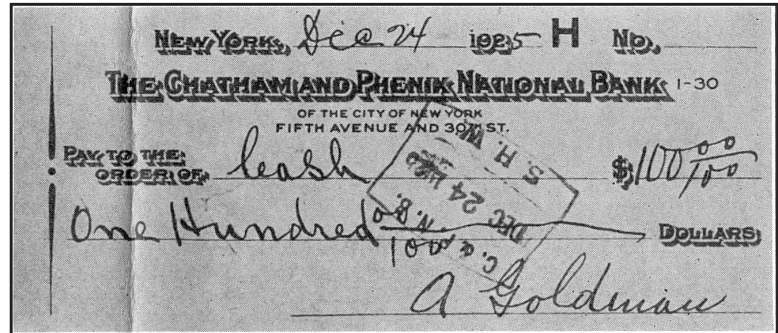 NEW YORK, Dec 24 1925 H NO.
THE CHATHAM AND PHENIX NATIONAL BANK 1-30
OF THE CITY OF NEW YORK
FIFTH AVENUE AND 30TH ST.
PAY TO THE
ORDER OF Cash $100 00/100
One Hundred 00/100 DOLLARS
A Goldman
C. & P. N. B.
DEC 24
S. H. W.